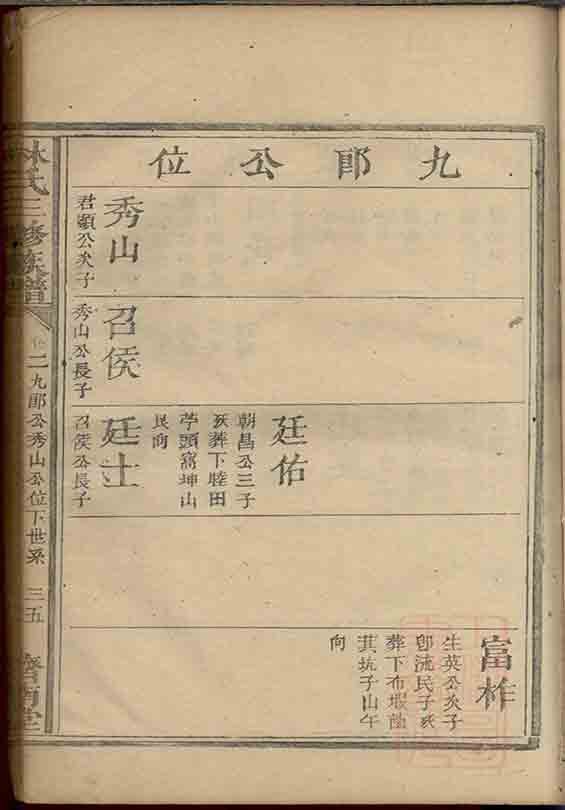 九郎公位
富柞
生英公次子
葬下布塅
其坑子山午
向
廷佑
朝昌公三子
葬下睦田
苧頭窩坤山
艮向
秀山
君顯公次子
召侯
秀山公長子
廷士
召侯公長子
林氏三修族譜
卷二九郎公秀山公位下世系
三五
濟南堂